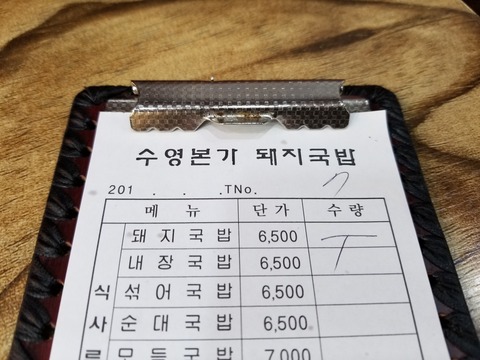 수영본가 돼지국밥
201 . . .TNo. 7
메 뉴 단 가 수 량
돼 지 국 밥 6,500
내 장 국 밥 6,500
식 섞 어 국 밥 6,500
사 순 대 국 밥 6,500
류 모 듬 국 밥 7,000